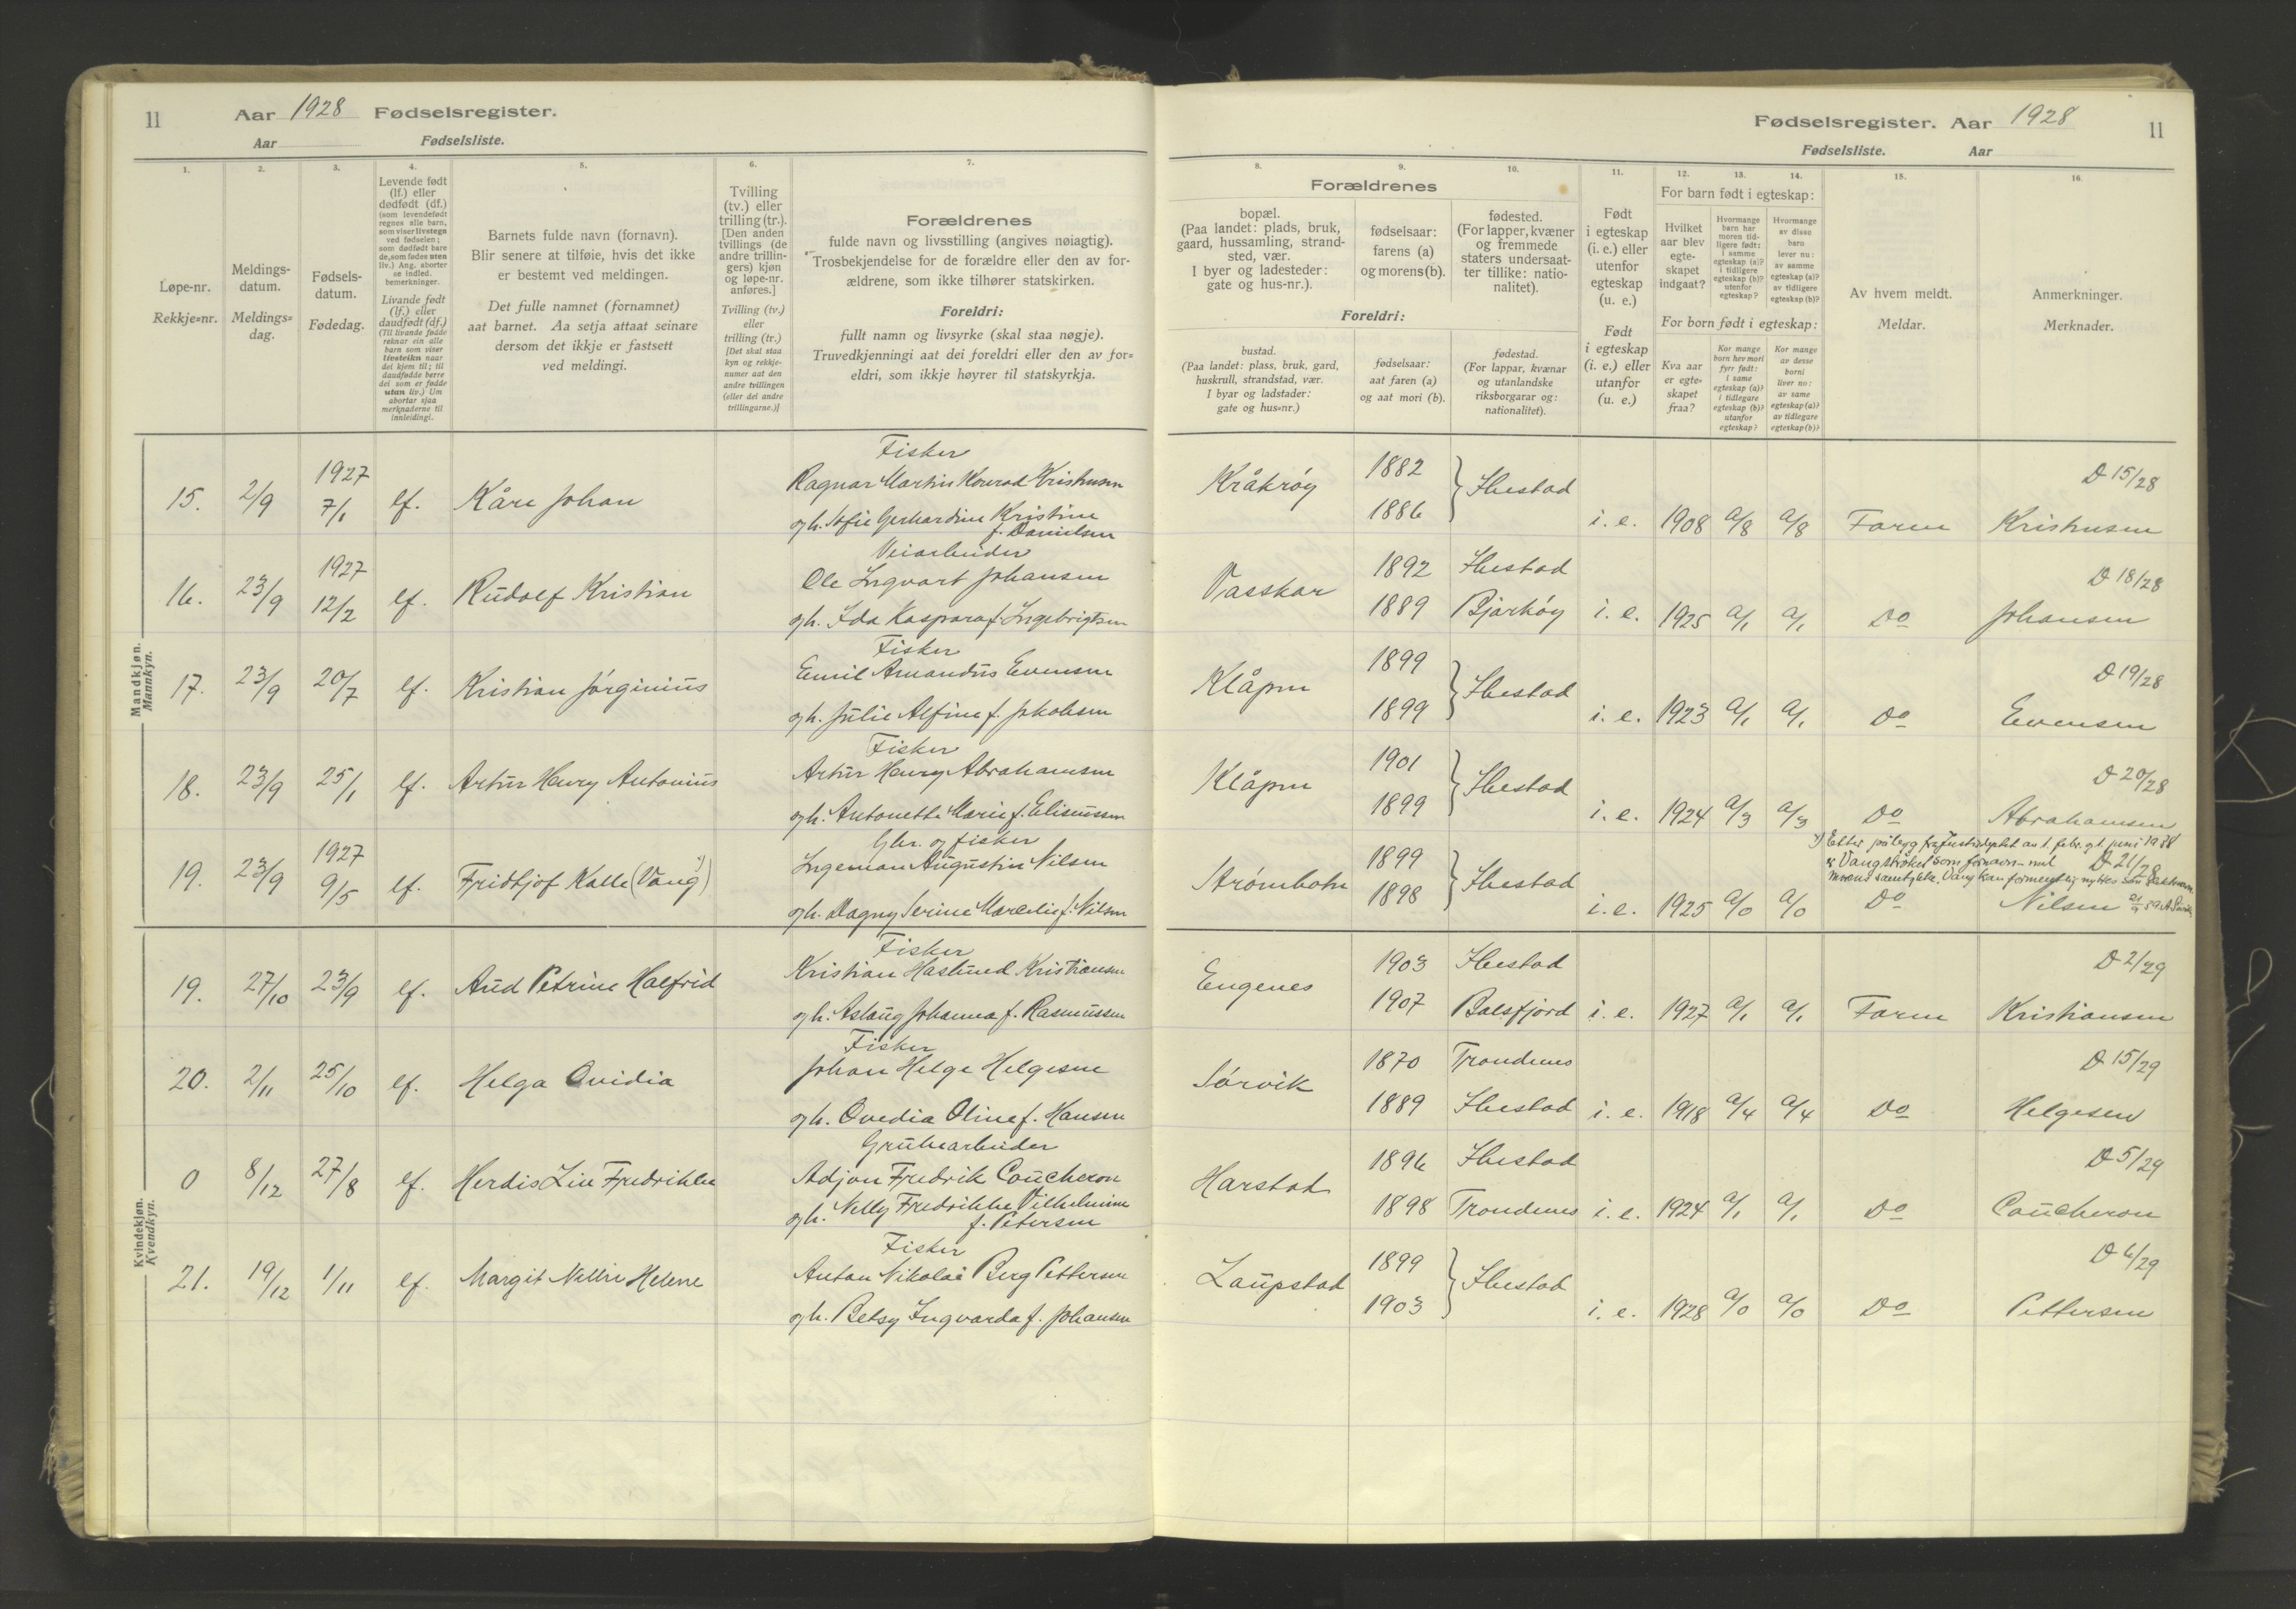 11 Aar 1928 Fødselsregister.
Aar Fødselsliste.
1. 2. 3. 4. 5. 6. 7.
Løpe-nr.
Rekkje=nr.
Meldings-
datum.
Meldings=
dag.
Fødsels-
datum.
Fødedag.
Levende født
(lf.) eller
dødfødt (df.)
(som levendefødt
regnes alle barn,
som viser livstegn
ved fødselen;
som dødfødt bare
de, som fødes uten
liv.) Ang. aborter
se indled.
bemerkninger.
Livande født
(lf.) eller
daudfødt (df.)
(Til livande fødde
reknar ein alle
barn som viser
livsteikn naar
dei kjem til; til
daudfødde berre
dei som er fødde
utan liv.) Um
abortar sjaa
merknaderne til
innleidingi.
Barnets fulde navn (fornavn).
Blir senere at tilføie, hvis det ikke
er bestemt ved meldingen.
Det fulle namnet (fornamnet)
aat barnet. Aa setja attaat seinare
dersom det ikkje er fastsett
ved meldingi.
Tvilling
(tv.) eller
trilling (tr.).
[Den anden
tvillings (de
andre trillin-
gers) kjøn
og løpe-nr.
anføres.]
Tvilling (tv.)
eller
trilling (tr.)
[Det skal staa
kyn og rekkje-
numer aat den
andre tvillingen
(eller dei andre
trillingarne.)]
Forældrenes
fulde navn og livsstilling (angives nøiagtig).
Trosbekjendelse for de forældre eller den av for-
ældrene, som ikke tilhører statskirken.
Foreldri:
fullt namn og livsyrke (skal staa nøgje).
Truvedkjenningi aat dei foreldri eller den av for=
eldri, som ikkje høyrer til statskyrkja.
Mandkjøn.
Mannkyn.
Fisker
15. 2/9 1927 7/1 lf. Kåre Johan Ragnar Martin Konrad Kristensen
og h. Sofie Gerhardine Kristine
f. Danielsen
Veiarbeider
16. 23/9 1927 12/2 lf. Rudolf Kristian Ole Ingvart Johansen
og h. Ida Kaspara f. Ingebrigtsen
Fisker
17. 23/9 20/7 lf. Kristian Jørginius Emil Amandus Evensen
og h. Julie Alfine f. Jakobsen
Fisker
18. 23/9 25/1 lf. Artur Henry Antonius Artur Henry Abrahamsen
og h. Antonette Marie f. Eliseussen
Gbr. og fisker
19. 23/9 1927 9/5 lf. Fridtjof Kalle (Vang) x) Ingeman Augustin Nilsen
og h. Dagny Serine Marelie f. Nilsen
Kvindekjøn.
Kvendkyn.
Fisker
19. 27/10 23/9 lf. Aud Petrine Halfrid Kristian Haslund Kristiansen
og h. Aslaug Johanna f. Rasmussen
Fisker
20. 2/11 25/10 lf. Helga Ovidia Johan Helge Helgesen
og h. Ovedia Oline f. Hansen
Grubearbeider
0 8/12 27/8 lf. Herdis Liv Fredrikke Adjon Fredrik Coucheron
og h. Nelly Fredrikke Vilhelmine
f. Petersen
Fisker
21. 19/12 1/11 lf. Margit Nellie Helene Anton Nikolai Berg Pettersen
og h. Betsy Ingvarda f. Johansen
Fødselsregister. Aar 1928 11
Fødselsliste. Aar
8. 9. 10. 11. 12. 13. 14. 15. 16.
Forældrenes
bopæl.
(Paa landet: plads, bruk,
gaard, hussamling, strand-
sted, vær.
I byer og ladesteder:
gate og hus-nr.).
fødselsaar:
farens (a)
og morens (b).
fødested.
(For lapper, kvæner
og fremmede
staters undersaat-
ter tillike: natio-
nalitet).
Foreldri:
bustad.
(Paa landet: plass, bruk, gard,
huskrull, strandstad, vær.
I byar og ladstader:
gate og hus=nr.)
fødselsaar:
aat faren (a)
og aat mori (b).
fødestad.
(For lappar, kvænar
og utanlandske
riksborgarar og:
nationalitet).
Født
i egteskap
(i. e.) eller
utenfor
egteskap
(u. e.)
Født
i egteskap
(i. e.) eller
utanfor
(u. e.)
For barn født i egteskap:
Hvilket
aar blev
egte-
skapet
indgaat?
Hvormange
barn har
moren tid-
ligere født:
i samme
egteskap (a)?
i tidligere
egteskap (b)?
utenfor
egteskap?
Hvormange
av disse
barn
lever nu:
av samme
egteskap (a)?
av tidligere
egteskap (b)?
For born født i egteskap:
Kva aar
er egte=
skapet
fraa?
Kor mange
born hev mori
fyrr født:
i same
egteskap (a)?
i tidlegare
egteskap (b)?
utanfor
egteskap?
Kor mange
av desse
borni
liver no:
av same
egteskap (a)?
av tidlegare
egteskap (b)?
Av hvem meldt.
Meldar.
Anmerkninger.
Merknader.
Kråkrøy 1882 1886 } Ibestad i. e. 1908 a/8 a/8 Faren D 15/28 Kristensen
Vasskar 1892 Ibestad 1889 Bjarkøy i. e. 1925 a/1 a/1 Do D 18/28 Johansen
Klåpen 1899 1899 } Ibestad i. e. 1923 a/1 a/1 Do D 19/28 Evensen
Klåpen 1901 1899 } Ibestad i. e. 1924 a/3 a/3 Do D 20/28 Abrahamsen
x) Etter påbygg fra Justisdeptet av 1. febr. jf. juni 1938
er Vang strøket som fornavn med D 21/28
morens samtykke. Vang kan formentlig nyttes som slektsnavn.
Strømbotn 1899 1898 } Ibestad i. e. 1925 a/0 a/0 Do Nilsen
Engenes 1903 Ibestad 1907 Balsfjord i. e. 1927 a/1 a/1 Faren D 2/29 Kristiansen
Sørvik 1870 Trondenes 1889 Ibestad i. e. 1918 a/4 a/4 Do D 15/29 Helgesen
Harstad 1896 Ibestad 1898 Trondenes i. e. 1924 a/1 a/1 Do D 5/29 Coucheron
Laupstad 1899 1903 } Ibestad i. e. 1928 a/0 a/0 Do D 6/29 Pettersen